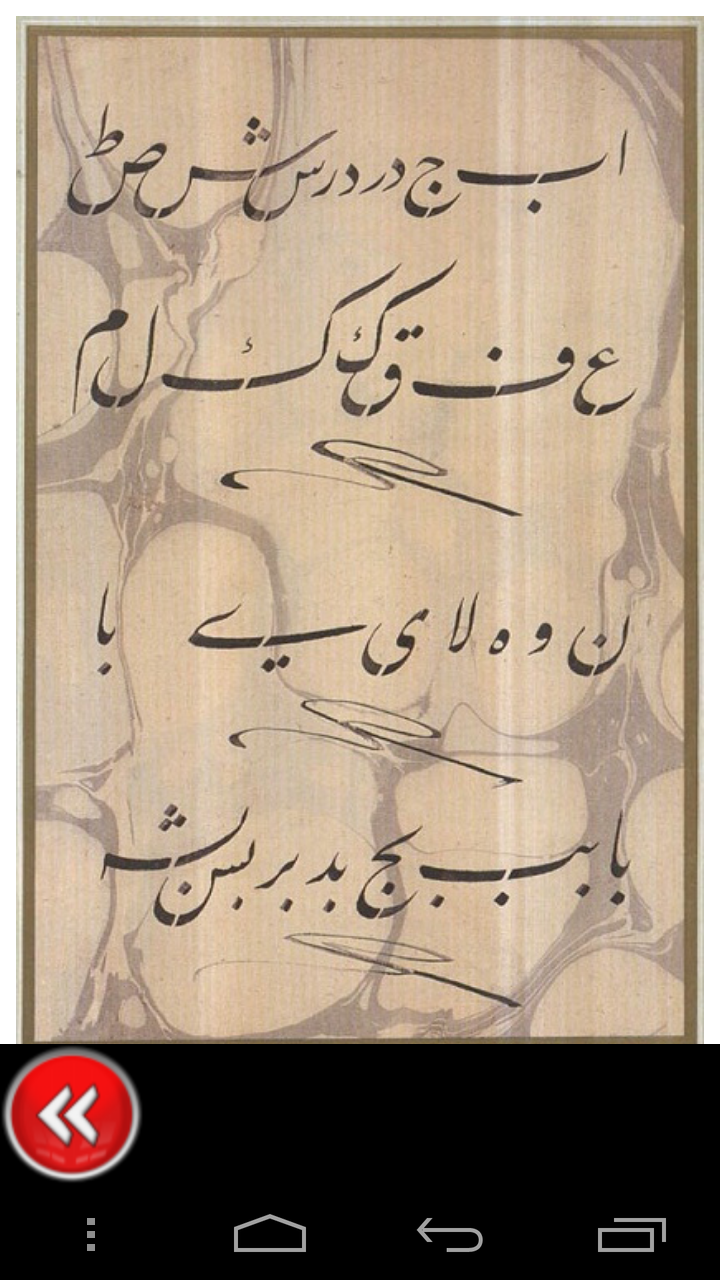 ا ب ج د ر د ر س ش ص ط
ع ف ق ك ك ل م
ن و ه لا ى ے با
با بب بج بد بر بس بش